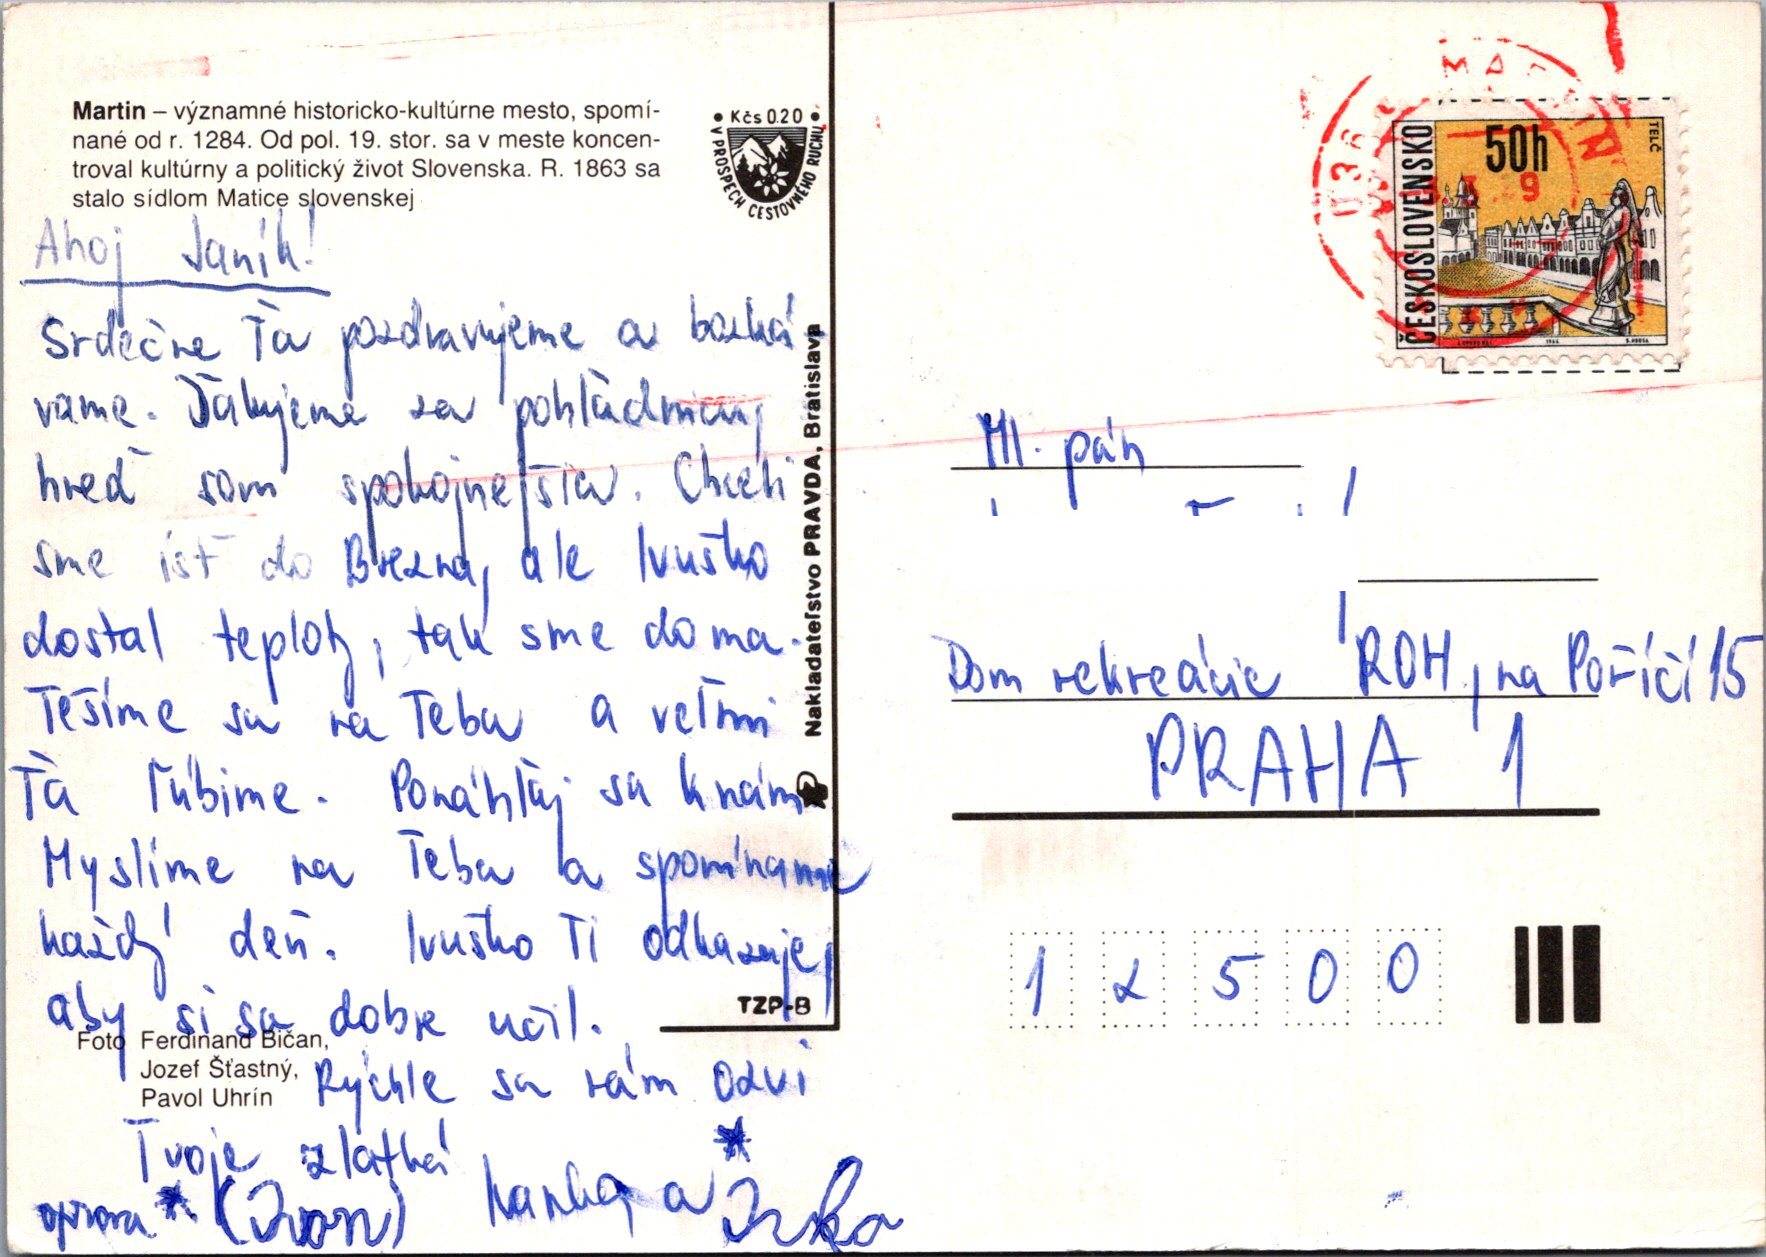 Martin – významné historicko-kultúrne mesto, spomí-
nané od r. 1284. Od pol. 19. stor. sa v meste koncen-
troval kultúrny a politický život Slovenska. R. 1863 sa
stalo sídlom Matice slovenskej
• Kčs 0.20 •
V PROSPECH CESTOVNÉHO RUCHU
Ahoj Janík!
Srdečne Ťa pozdravujeme a bozká-
vame. Ďakujeme za pohľadnicu,
hneď som spokojnejšia. Chceli
sme ísť do Brezna, ale Ivuško
dostal teploty, tak sme doma.
Tešíme sa na Teba a veľmi
Ťa ľúbime. Ponáhľaj sa k nám
Myslíme na Teba a spomíname
každý deň. Ivuško Ti odkazuje,
aby si sa dobre učil.
Rýchle sa nám ozvi
Tvoje zlatká
Hanka a *Ivka
oprava *. (Ivan)
Foto Ferdinand Bičan,
Jozef Šťastný,
Pavol Uhrín
Nakladateľstvo PRAVDA, Bratislava
TZP-B
ČESKOSLOVENSKO
50h
TELČ
036
9
Ml. pán
Dom rekreácie ROH, na Poříčí 15
PRAHA 1
1 2 5 0 0